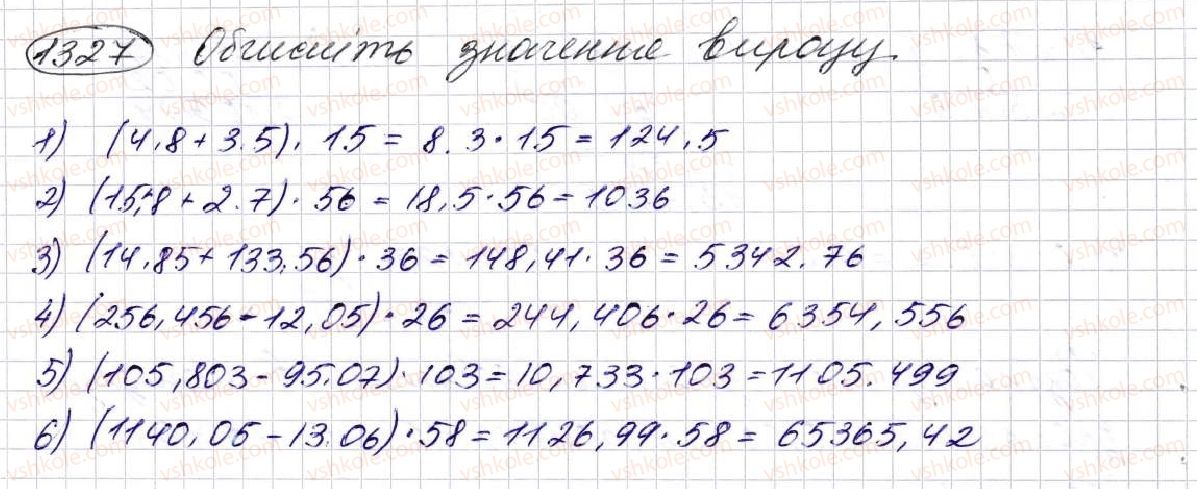 1327 Обчисліть значення виразу.
1) (4,8 + 3.5) · 15 = 8.3 · 15 = 124,5
2) (15,8 + 2.7) · 56 = 18,5 · 56 = 1036
3) (14.85 + 133.56) · 36 = 148,41 · 36 = 5342.76
4) (256,456 - 12,05) · 26 = 244,406 · 26 = 6354,556
5) (105,803 - 95.07) · 103 = 10,733 · 103 = 1105.499
6) (1140,05 - 13.06) · 58 = 1126,99 · 58 = 65365,42